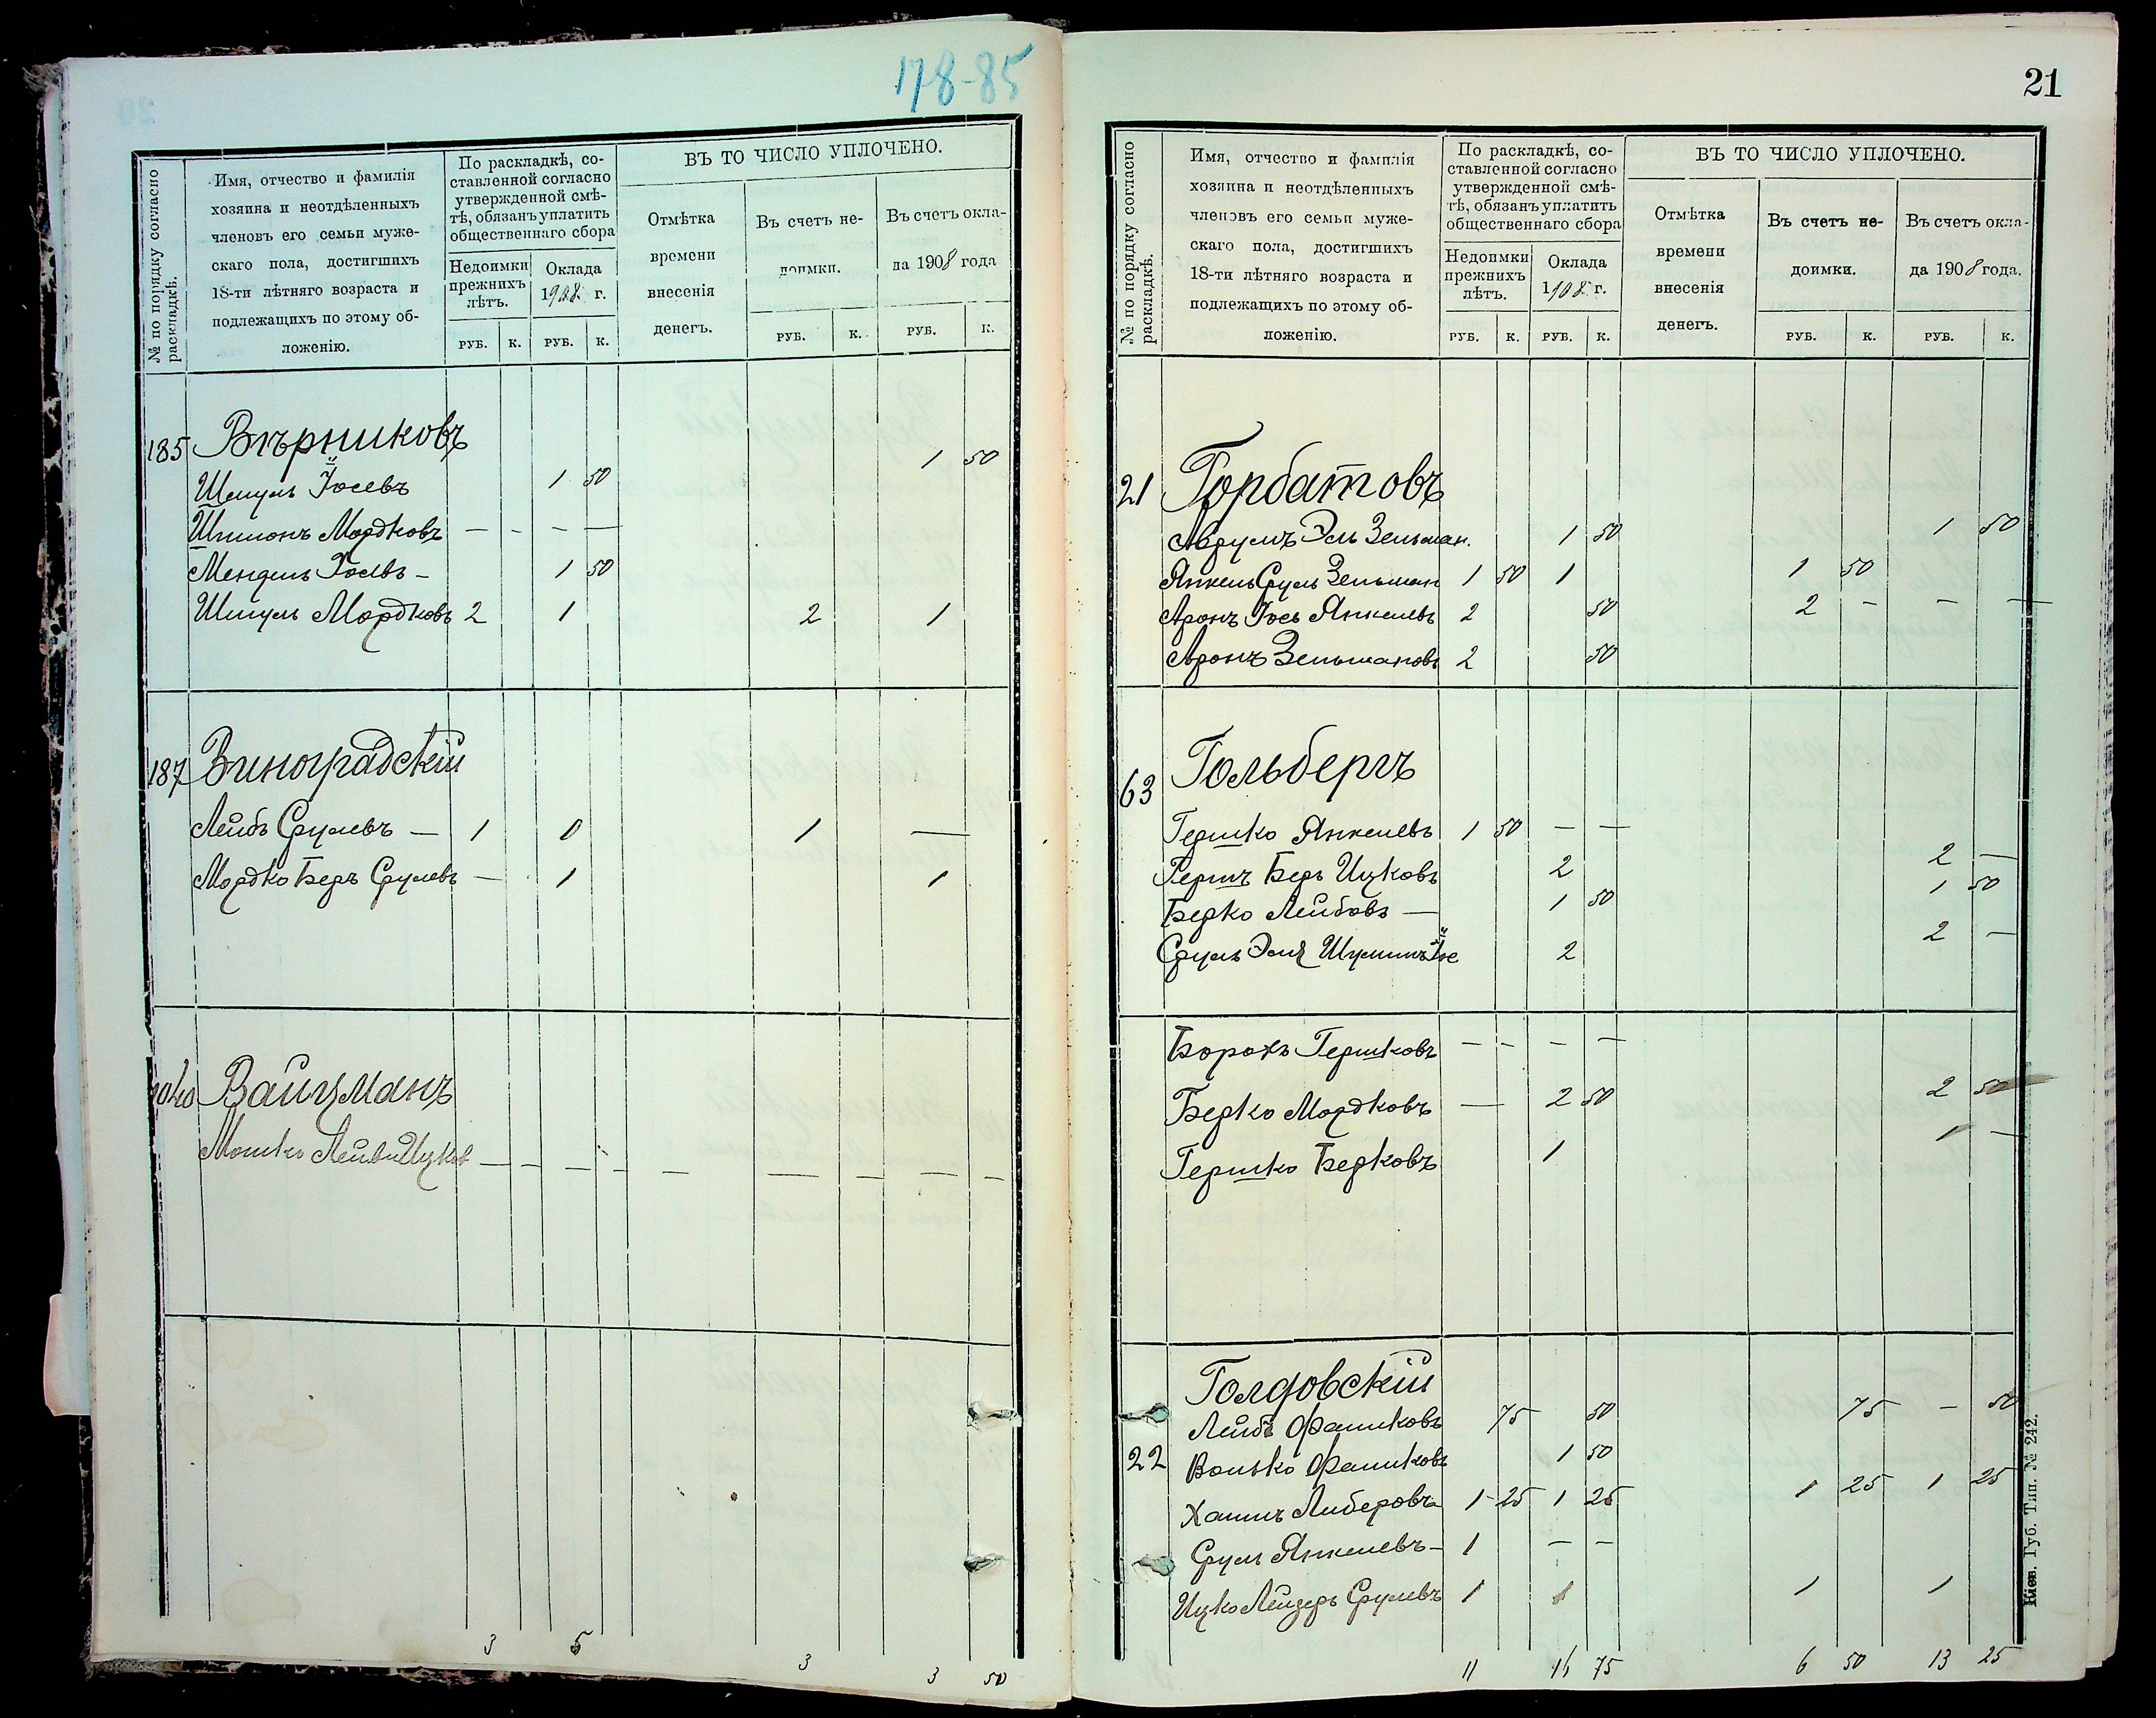 178-85
№ по порядку согласно раскладкѣ.
Имя, отчество и фамилія
хозяина и неотдѣленныхъ
членовъ его семьи муже-
скаго пола, достигшихъ
18-ти лѣтняго возраста и
подлежащихъ по этому об-
ложенію.
По раскладкѣ, со-
ставленной согласно
утвержденной смѣ-
тѣ, обязанъ уплатить
общественнаго сбора
Недоимки
прежнихъ
лѣтъ.
Оклада
1908 г.
ВЪ ТО ЧИСЛО УПЛОЧЕНО.
Отмѣтка
времени
внесенія
денегъ.
Въ счетъ не-
доимки.
Въ счетъ окла-
да 1908 года
РУБ. К. РУБ. К. РУБ. К. РУБ. К.
185 Вѣрниковъ
Шмуль Іосевъ 1 50 1 50
Шимонъ Мордковъ — - - —
Мендель Іосевъ - 1 50
Шмуль Мордковъ 2 1 2 1
187 Виноградскій
Лейбъ Срулевъ — 1 0 1 —
Мордко Беръ Срулевъ — 1 1
1040 Вайцманъ
Мошко Лейви Ицков — - - - — — - — -
3 5 3 3 50
21
№ по порядку согласно раскладкѣ.
Имя, отчество и фамилія
хозяина и неотдѣленныхъ
членовъ его семьи муже-
скаго пола, достигшихъ
18-ти лѣтняго возраста и
подлежащихъ по этому об-
ложенію.
По раскладкѣ, со-
ставленной согласно
утвержденной смѣ-
тѣ, обязанъ уплатить
общественнаго сбора
Недоимки
прежнихъ
лѣтъ.
Оклада
1908 г.
ВЪ ТО ЧИСЛО УПЛОЧЕНО.
Отмѣтка
времени
внесенія
денегъ.
Въ счетъ не-
доимки.
Въ счетъ окла-
да 1908 года.
РУБ. К. РУБ. К. РУБ. К. РУБ. К.
21 Горбатовъ
Аврумъ Эль Зельман. 1 50 1 50
Янкель Сруль Зельман 1 50 1 1 50
Аронъ Іось Янкелевъ 2 50 2 - - —
Аронъ Зельмановъ 2 50
63 Гольбергъ
Гершко Янкелевъ 1 50 — —
Гершъ Беръ Ицковъ 2 2 —
Берко Лейбовъ — 1 50 1 50
Сруль Эля 2 2 —
Борохъ Гершковъ — - - —
Берко Мордковъ — 2 50 2 50
Гершко Берковъ 1 1 —
Голдовскій
Лейбъ Фашковъ 75 50 75 - 50
22 Волько Фашковъ 1 50
Хаимъ Либеровъ 1 25 1 25 1 25 1 25
Сруль Янкелевъ - 1 — -
Ицко Лейзеръ Срулевъ 1 1 1 1
11 16 75 6 50 13 25
Кіев. Губ. Тип. № 242.